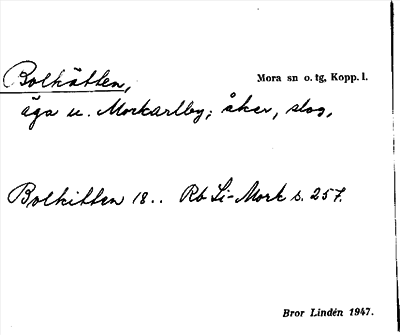 Bolkätten,
Mora sn o. tg, Kopp. l.
äga u. Morkarlby; åker, slog,
Bolkitten 18.. Rb Li-Mork s. 257.
Bror Lindén 1947.